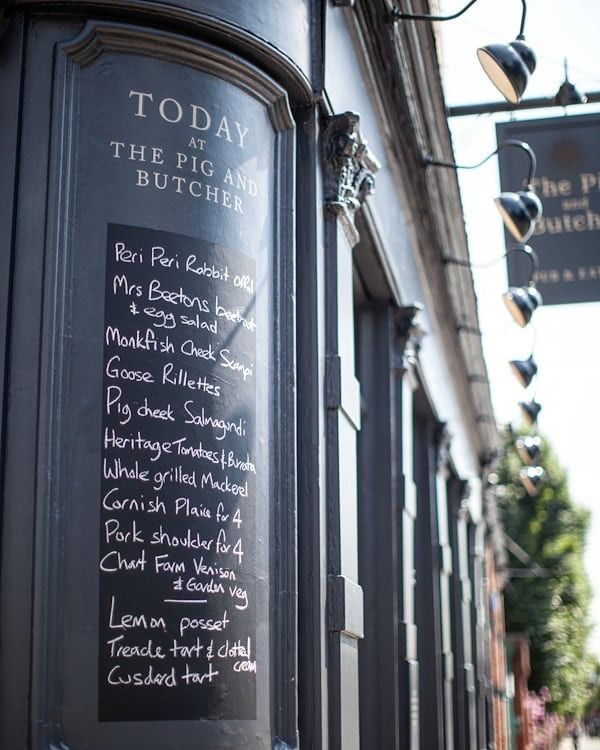 TODAY
AT
THE PIG AND
BUTCHER
Peri Peri Rabbit offal
Mrs Beetons beetroot
& egg salad
Monkfish Cheek Scampi
Goose Rillettes
Pig cheek Salmagundi
Heritage Tomatoes & Burrata
Whole grilled Mackerel
Cornish Plaice for 4
Pork shoulder for 4
Chart Farm Venison
& Garden veg
Lemon posset
Treacle tart & clotted
cream
Cusdard tart
The Pi
and
Butch
PUB & EA